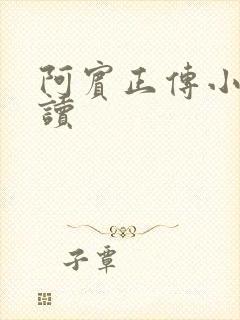 阿賓正傳小
讀
子蕈